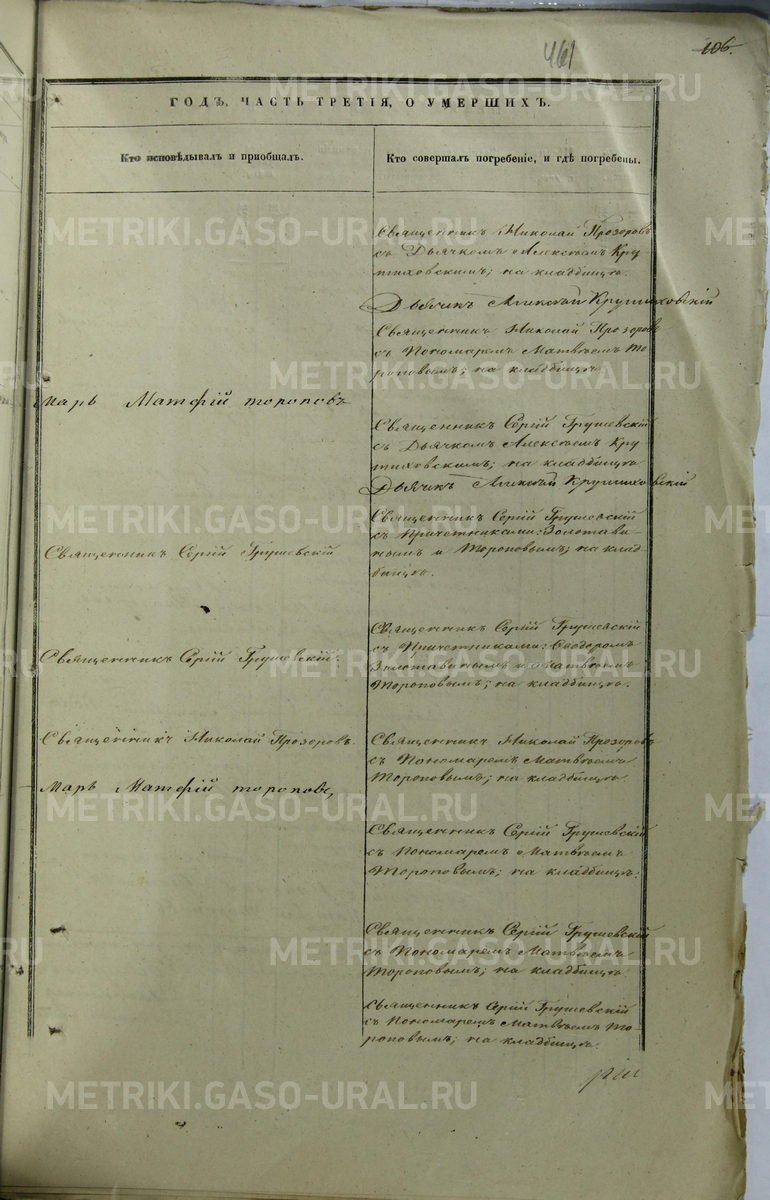 461
106.
ГОДЪ, ЧАСТЬ ТРЕТІЯ, О УМЕРШИХЪ.
Кто исповѣдывалъ и приобщалъ.
Кто совершалъ погребеніе, и гдѣ погребены.
Священникъ Николай Прозоровъ
съ Дьячкомъ Алексѣемъ Кру
тиховскимъ; на кладбищѣ.
Дьячикъ Алексѣй Крутиховскій
Священникъ Николай Прозоровъ
съ Пономаремъ Матвѣемъ То
роповымъ; на кладбищѣ
марь Матфій тороповъ
Священникъ Сергій Грушевскій
съ Дьячкомъ Алексѣемъ Кру
тиховскимъ; на кладбищѣ
Дьячикъ Алексѣй Крутиховскій
Священникъ Сергій Грушевскій
Священникъ Сергій Грушевскій
съ Причетниками: Золотави-
нымъ и Тороповымъ; на клад
бищѣ.
Священникъ Сергій Грушевскій.
Священникъ Сергій Грушевскій
съ Причетниками: Ѳеодоромъ
Золотавинымъ и Матвѣемъ
Тороповымъ; на кладбищѣ.
Священникъ Николай Прозоровъ.
Марь Матфій тороповъ,
Священникъ Николай Прозоровъ
съ Пономаремъ Матвѣемъ
Тороповымъ; на кладбищѣ.
Священникъ Сергій Грушевскій
съ Пономаремъ Матвѣемъ
Тороповымъ; на кладбищѣ.
Священникъ Сергій Грушевскій
съ Пономаремъ Матвѣемъ
Тороповымъ; на кладбищѣ
Священникъ Сергій Грушевскій
съ Пономаремъ Матвѣемъ То
роповымъ; на кладбищѣ.
METRIKI.GASO-URAL.RU